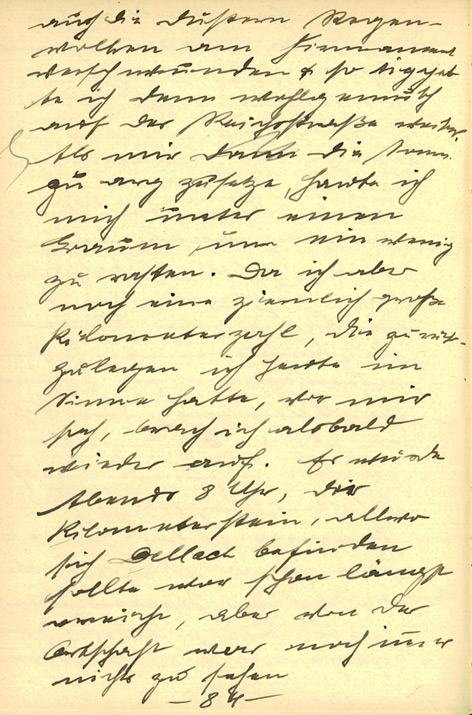 auch die düstern Regen-
wolken am Firmament
verschwunden & so tigget
te ich denn wohlgemuth
auf der Reichsstraße weiter.
Als mir dann die Sonne
zu arg zusetze, haute ich
mich unter einen
Baum, um ein wenig
zu rasten. Da ich aber
noch eine ziemlich große
Kilometerzahl, die zurück-
zulegen ich heute im
Sinne hatte, vor mir
sah, brach ich alsbald
wieder auf. Es wurde
Abends 8 Uhr, der
Kilometerstein, allwo
sich Dellach befinden
sollte war schon längst
erreicht, aber von der
Ortschaft war noch immer
nichts zu sehen
-84-